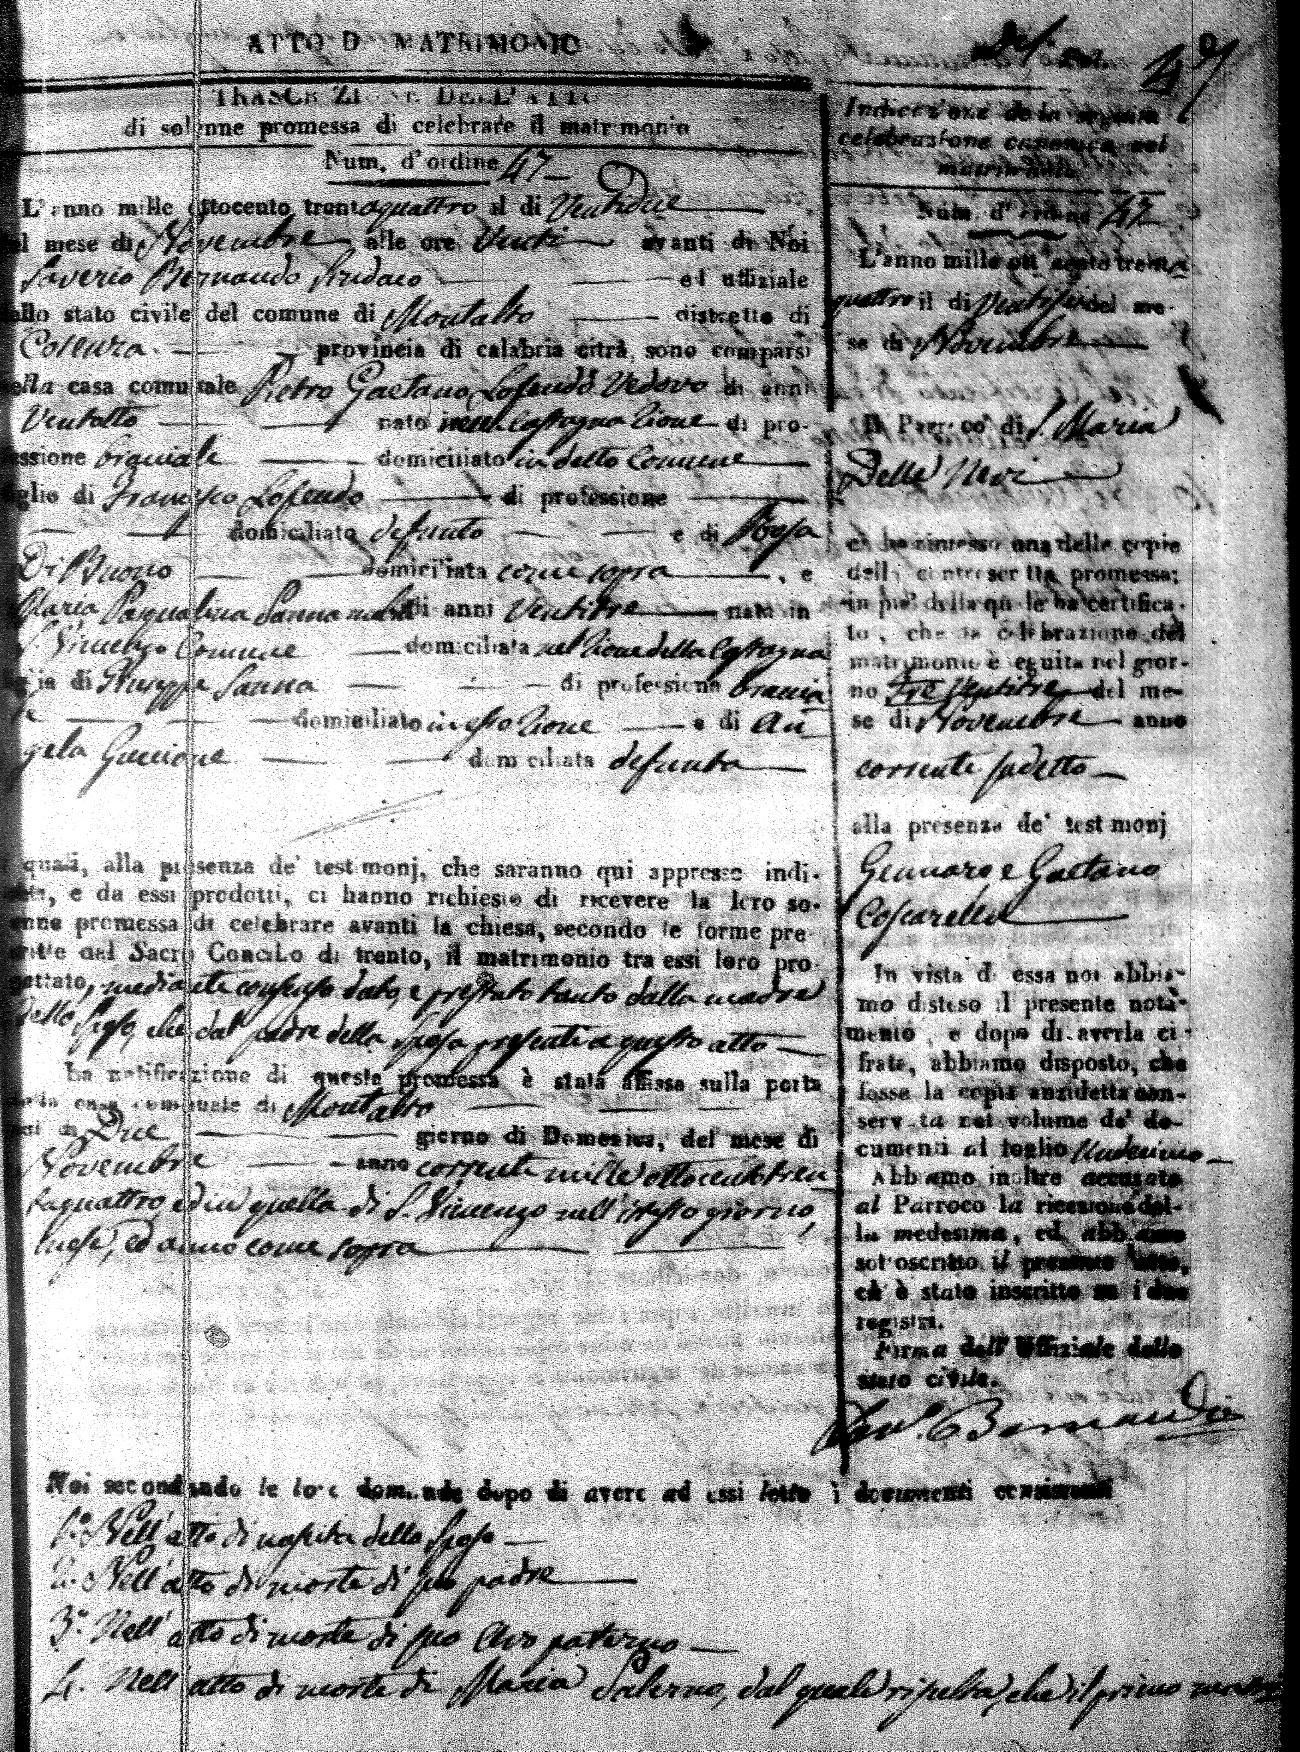 ATTO D MATRIMONIO
47
TRASCRIZIONE DELL'ATTO
di solenne promessa di celebrare il matrimonio
Num. d'ordine 47
L'anno mille ottocento trentaquattro il di Ventidue
del mese di Novembre alle ore Venti avanti di Noi
Saverio Bernaudo Sindaco ed uffiziale
dello stato civile del comune di Montalto distretto di
Cosenza provincia di calabria citrà, sono comparsi
nella casa comunale Pietro Gaetano Lofendo Vedovo di anni
Ventotto nato Castagna Zione di pro-
fessione bracciale domiciliato in detto Comune
figlio di Francesco Lofendo di professione
domiciliato defunto e di Rosa
Di Buono domiciliata come sopra, e
Maria Pasqualina Sanna di anni Ventitre nata in
S. Vincenzo Comune domiciliata nel Zione della Castagna
figlia di Giuseppe Sanna di professione braccia
le domiciliato in esso Zione e di An
gela Guccione domiciliata defunta
I quali, alla presenza de' testimonj, che saranno qui appresso indi-
cati, e da essi prodotti, ci hanno richiesto di ricevere la loro so-
lenne promessa di celebrare avanti la chiesa, secondo le forme pre-
scritte dal Sacro Concilio di trento, il matrimonio tra essi loro pro-
gettato, mediante consenso dato, e prestato tanto dalla madre
dello Sposo, che dal padre della Sposa presenti a questo atto
La notificazione di questa promessa è stata affissa sulla porta
della casa comunale di Montalto
Due giorno di Domenica, del mese di
Novembre anno corrente mille ottocentotren
taquattro ed in quella di S. Vincenzo nell'istesso giorno,
mese, ed anno come sopra
Indicazione della seguita
celebrazione canonica nel
matrimonio
Num. d'ordine 47
L'anno mille ottocento trenta
quattro il di del me-
se di Novembre
Il Parroco di S. Maria
Delle Nevi
ci ha rimesso una delle copie
della controscritta promessa;
in piè della quale ha certifica-
to, che la celebrazione del
matrimonio è seguita nel gior-
no Ventitre del me-
se di Novembre anno
corrente sudetto
alla presenza de' testimonj
Gennaro e Gaetano
Coscarella
In vista di essa noi abbia-
mo disteso il presente nota-
mento, e dopo di averla ci-
frata, abbiamo disposto, che
fosse la copia anzidetta con-
servata nel volume de' do-
cumenti al foglio
Abbiamo inoltre accusato
al Parroco la ricezione del-
la medesima, ed abbiamo
sottoscritto il presente atto,
ch' è stato inscritto su i due
registri.
Firma dell' Uffiziale dello
stato civile.
Sav. Bernaudo
Noi secondando le loro domande dopo di avere ad essi letto i documenti consistenti
1.° Nell'atto di nascita dello Sposo
2. Nell'atto di morte di suo padre
3.° Nell'atto di morte di suo Avo paterno
4. Nell'atto di morte di Maria Salerno, dal quale risulta, che il primo